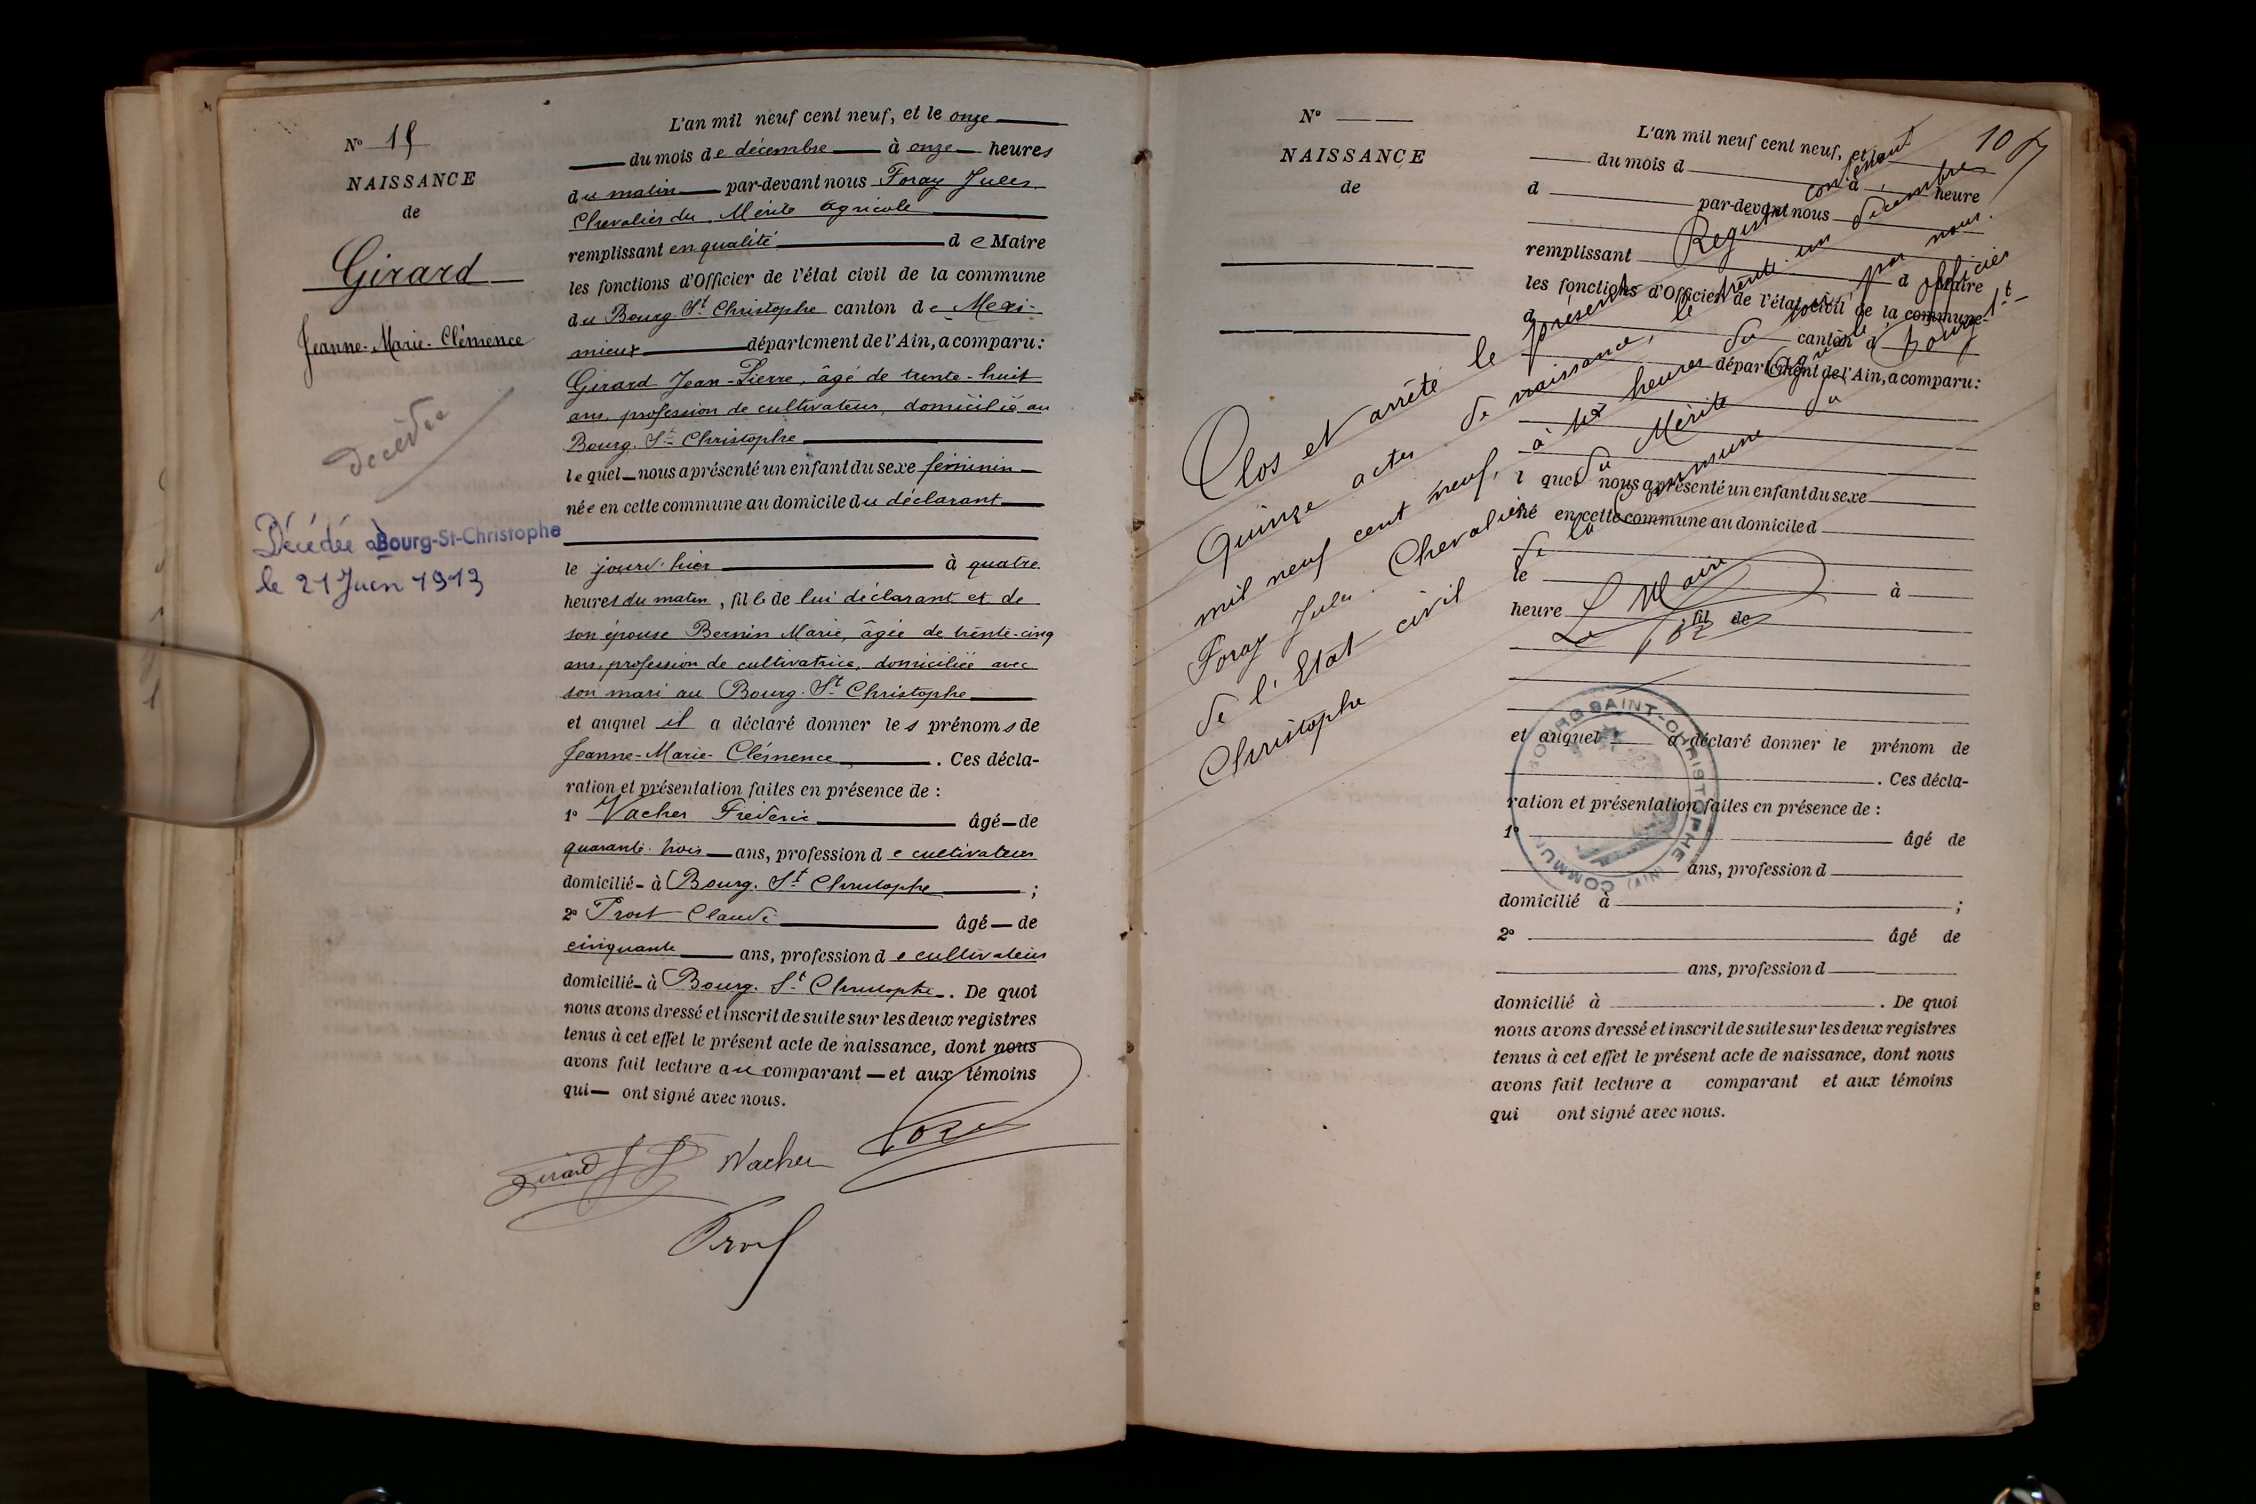 Nº 15
NAISSANCE
de
Girard
Jeanne-Marie-Clémence
décédée
Décédée à Bourg-St-Christophe
le 21 Juin 1913
L'an mil neuf cent neuf, et le onze
du mois de décembre à onze heures
du matin par-devant nous Foray Jules
Chevalier du Mérite agricole
remplissant en qualité de Maire
les fonctions d'Officier de l'état civil de la commune
du Bourg-St Christophe canton de Mexi-
mieux département de l'Ain, a comparu:
Girard Jean-Pierre, âgé de trente-huit
ans, profession de cultivateur, domicilié au
Bourg-St-Christophe
lequel nous a présenté un enfant du sexe féminin
née en cette commune au domicile du déclarant
le jourd'hier à quatre
heures du matin, fille de lui déclarant et de
son épouse Bernin Marie, âgée de trente-cinq
ans, profession de cultivatrice, domiciliée avec
son mari au Bourg-St Christophe
et auquel il a déclaré donner les prénoms de
Jeanne-Marie-Clémence. Ces décla-
ration et présentation faites en présence de :
1º Vacher Frédéric âgé de
quarante-trois ans, profession de cultivateur
domicilié à Bourg-St Christophe ;
2º Prost Claude âgé de
cinquante ans, profession de cultivateur
domicilié à Bourg-St Christophe. De quoi
nous avons dressé et inscrit de suite sur les deux registres
tenus à cet effet le présent acte de naissance, dont nous
avons fait lecture au comparant et aux témoins
qui ont signé avec nous.
Girard J P Vacher Foray
Prost
Nº
NAISSANCE
de
10
L'an mil neuf cent neuf, et le
du mois d à heure
d par-devant nous
remplissant d Maire
les fonctions d'Officier de l'état civil de la commune
d canton d
département de l'Ain, a comparu:
l quel nous a présenté un enfant du sexe
né en cette commune au domicile d
le à
heure fil de
et auquel a déclaré donner le prénom de
. Ces décla-
ration et présentation faites en présence de :
1º âgé de
ans, profession d
domicilié à ;
2º âgé de
ans, profession d
domicilié à . De quoi
nous avons dressé et inscrit de suite sur les deux registres
tenus à cet effet le présent acte de naissance, dont nous
avons fait lecture a comparant et aux témoins
qui ont signé avec nous.
Clos et arrêté le présent Registre contenant
Quinze actes de naissance, le trente-un décembre
mil neuf cent neuf, à six heures du soir par nous.
Foray Jules Chevalier du Mérite Agricole officier
de l'Etat civil de la Commune du Bourg St-
Christophe
Le Maire
BOURG SAINT-CHRISTOPHE (AIN) COMMUNE